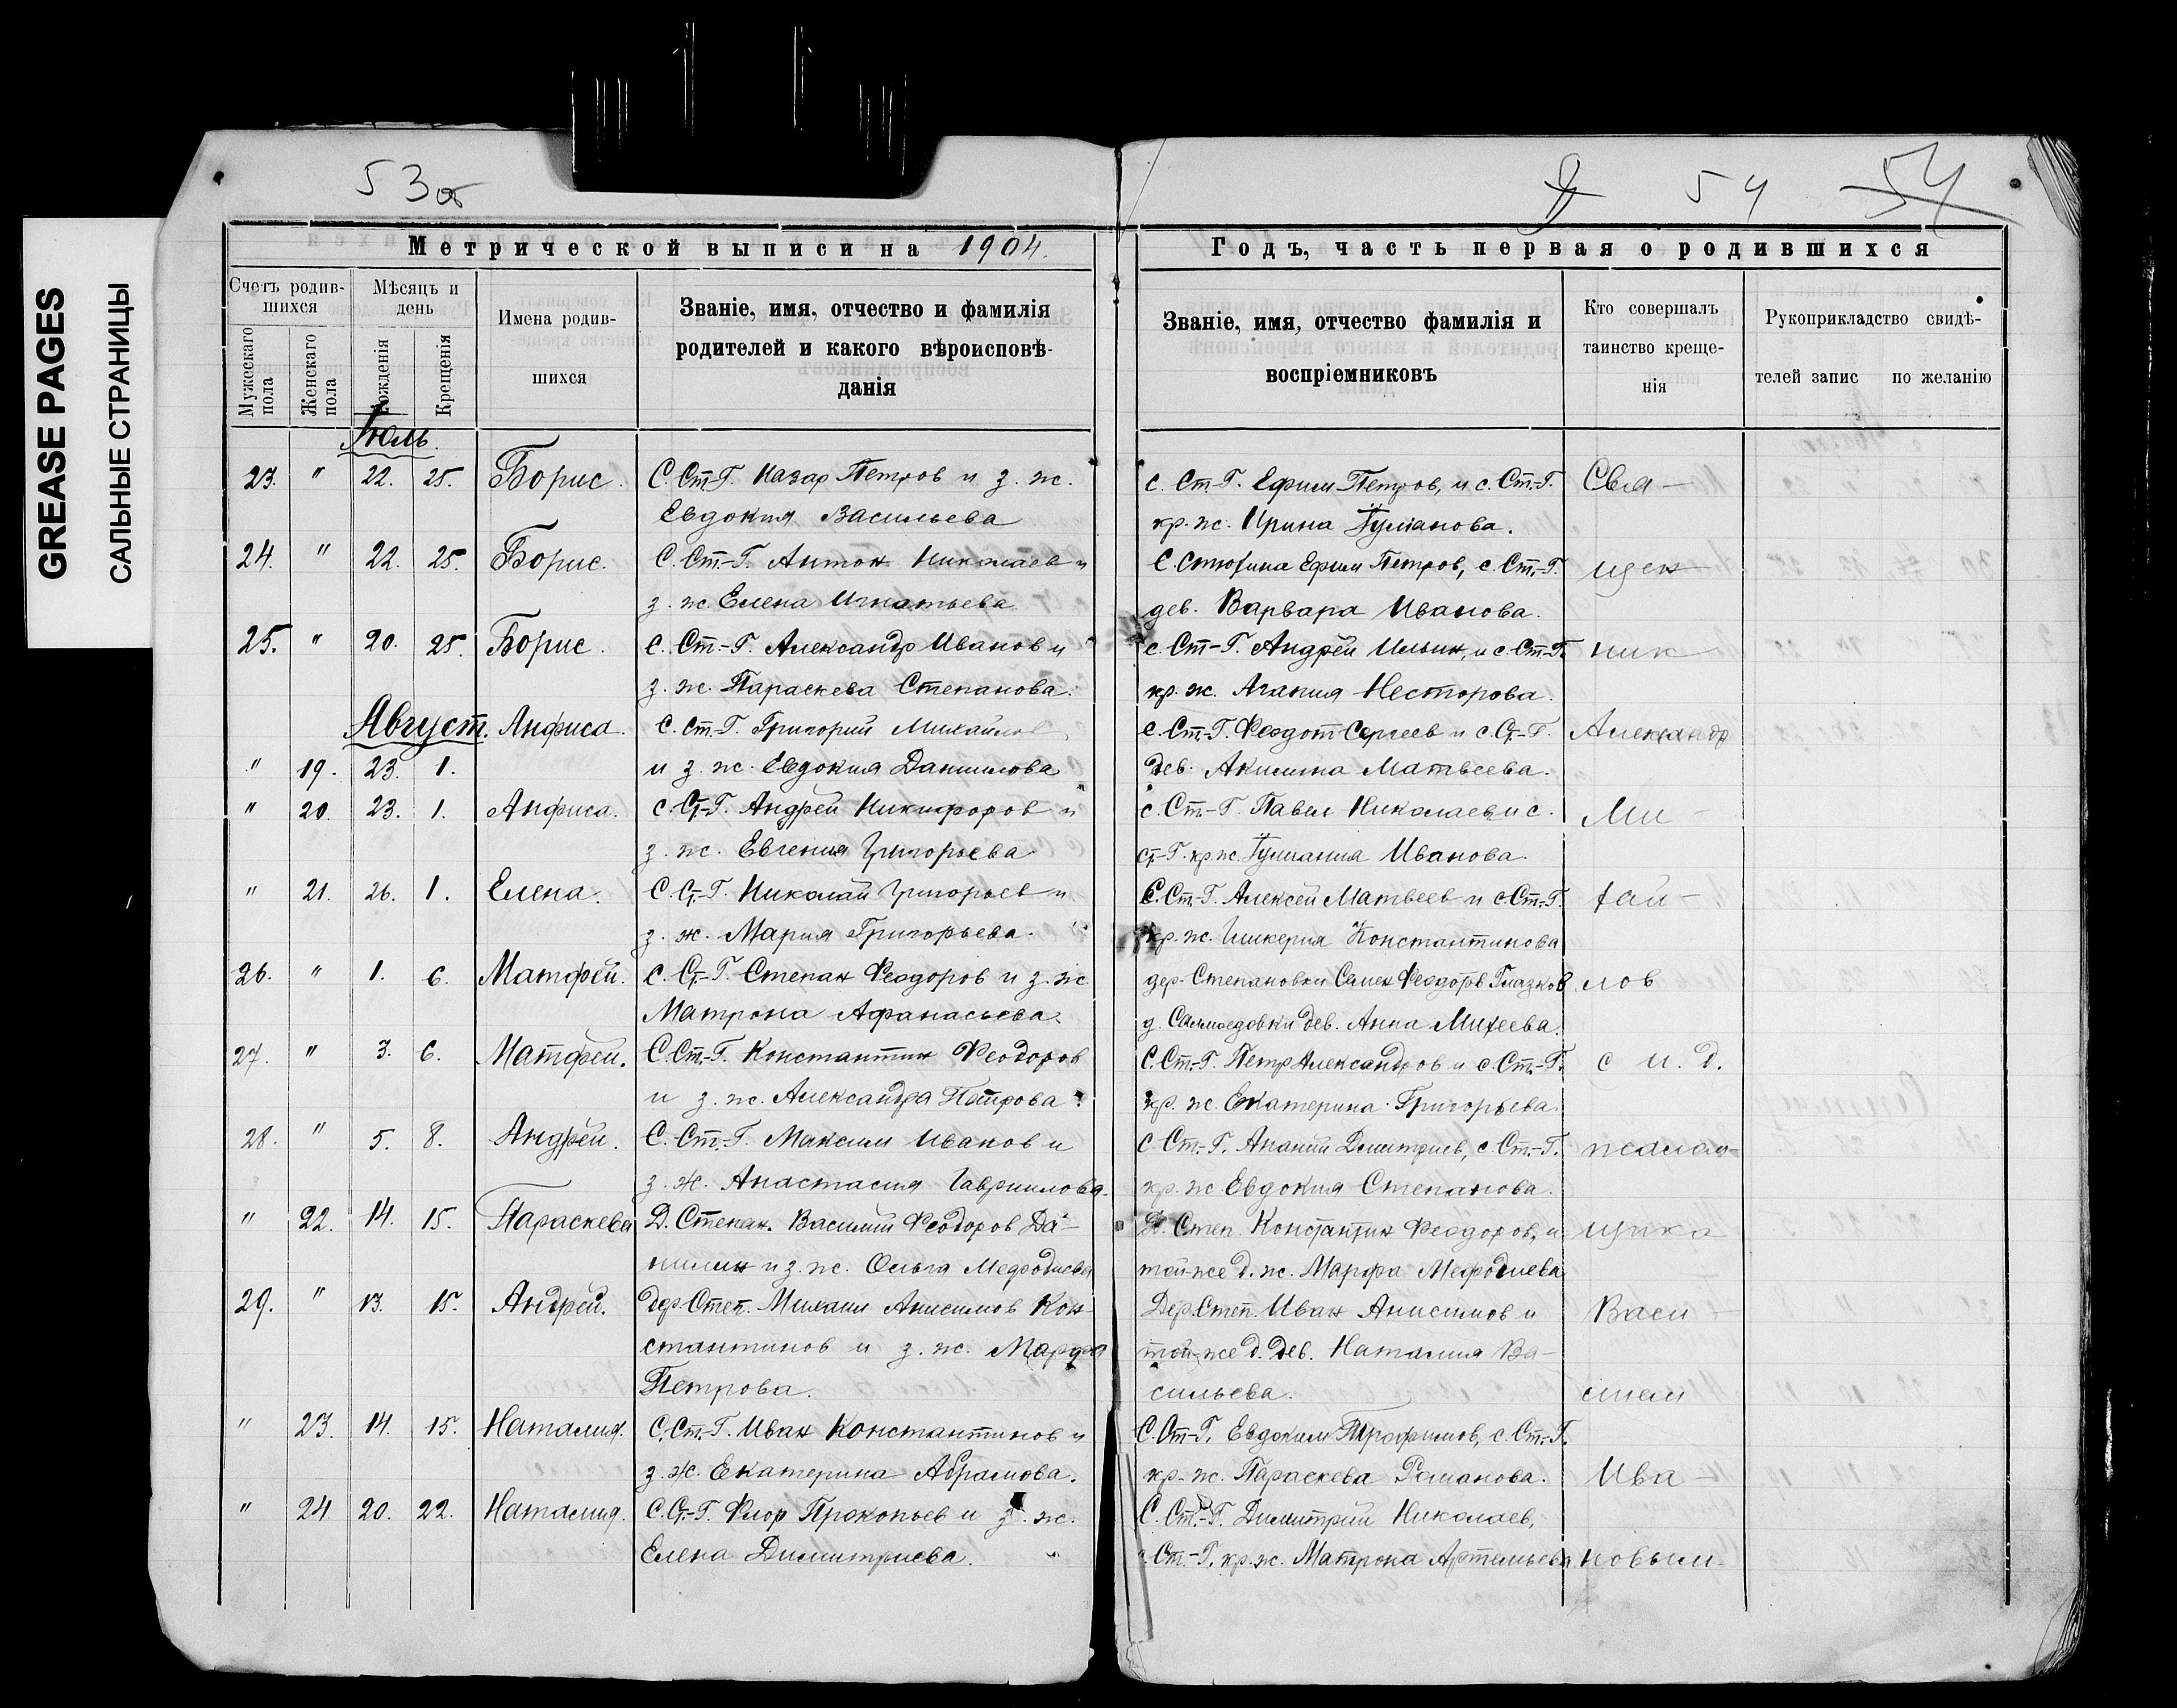 GREASE PAGES
САЛЬНЫЕ СТРАНИЦЫ
53об
54
54
Метрической выписи на 1904.
Счетъ родив-
шихся
Мѣсяцъ и
день
Имена родив-
шихся
Званіе, имя, отчество и фамилія
родителей и какого вѣроисповѣ-
данія
Мужескаго
пола
Женскаго
пола
Рожденія
Крещенія
Іюль.
23. " 22. 25. Борис. С. Ст.-Г. Назар Петров и з. ж.
Евдокия Васильева
24. " 22. 25. Борис. С. Ст.-Г. Антон Николаев и
з. ж. Елена Игнатьева
25. " 20. 25. Борис. С. Ст.-Г. Александр Иванов и
з. ж. Параскева Степанова.
Август. Анфиса. С. Ст.-Г. Григорий Михайлов
" 19. 23. 1. и з. ж. Евдокия Данилова
" 20. 23. 1. Анфиса. С. Ст.-Г. Андрей Никифоров и
з. ж. Евгения Григорьева
" 21. 26. 1. Елена. С. Ст.-Г. Николай Григорьев и
з. ж. Мария Григорьева.
26. " 1. 6. Матфей. С. Ст.-Г. Степан Феодоров и з. ж.
Матрона Афанасьева.
27. " 3. 6. Матфей. С. Ст.-Г. Константин Феодоров
и з. ж. Александра Петрова.
28. " 5. 8. Андрей. С. Ст.-Г. Максим Иванов и
з. ж. Анастасия Гавриилова.
" 22. 14. 15. Параскева Д. Степан. Василий Феодоров Да-
нилин и з. ж. Ольга Мефодиева
29. " 13. 15. Андрей. дер. Степ. Михаил Анисимов Кон-
стантинов и з. ж. Марфа
Петрова.
" 23. 14. 15. Наталия. С. Ст.-Г. Иван Константинов и
з. ж. Екатерина Абрамова.
" 24 20. 22. Наталия. С. Ст.-Г. Флор Прокопьев и з. ж.
Елена Димитриева.
Годъ, часть первая о родившихся
Званіе, имя, отчество фамилія и
воспріемниковъ
Кто совершалъ
таинство креще-
нія
Рукоприкладство свидѣ-
телей запис по желанію
с. Ст.-Г. Ефим Петров, и с. Ст.-Г. Свя-
кр. ж. Ирина
С. Ефим Петров, с. Ст.-Г. щен-
дев. Варвара Иванова.
с. Ст.-Г. Андрей Ильин, и с. Ст.-Г. ник
кр. ж. Агапия Несторова.
с. Ст.-Г. Феодот Сергеев и с. Ст.-Г. Александр
дев. Акилина Матвеева.
с. Ст.-Г. Павел Николаев и с. Ми-
Ст.-Г. кр. ж. Иулиания Иванова.
С. Ст.-Г. Алексей Матвеев и с. Ст.-Г. хай-
кр. ж. Гликерия Константинова
дер. Степановки Семен Феодоров Глазков лов
д. Самоедовки дев. Анна Михеева.
С. Ст.-Г. Петр Александров и с. Ст.-Г. с и. д.
кр. ж. Екатерина Григорьева.
С. Ст.-Г. Ананий Димитриев, с. Ст.-Г. псалом-
кр. ж. Евдокия Степанова.
Д. Степ. Константин Феодоров, и щика
той-же д. ж. Марфа Мефодиева
Дер. Степ. Иван Анисимов и Васи-
той-же д. дев. Наталия Ва-
сильева. лием
С. Ст.-Г. Евдоким Трофимов, с. Ст.-Г.
кр. ж. Параскева Романова. Ива-
С. Ст.-Г. Димитрий Николаев,
с. Ст.-Г. кр. ж. Матрона Артемьева новым.